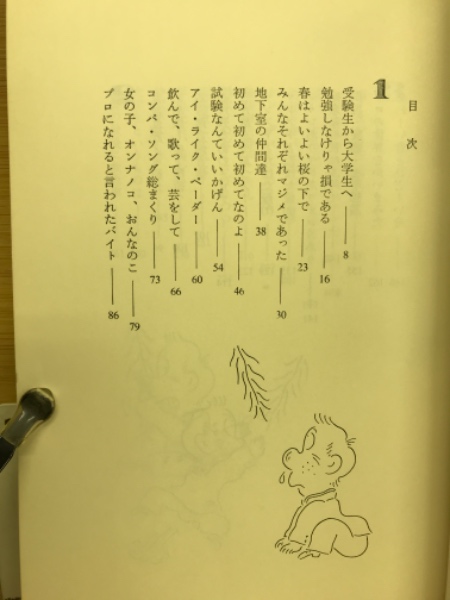 目次
1
受験生から大学生へ――8
勉強しなけりゃ損である――16
春はよいよい桜の下で――23
みんなそれぞれマジメであった――30
地下室の仲間達――38
初めて初めて初めてなのよ――46
試験なんていいかげん――54
アイ・ライク・ペーダー――60
飲んで、歌って、芸をして――66
コンパ・ソング総まくり――73
女の子、オンナノコ、おんなのこ――79
プロになれると言われたバイト――86